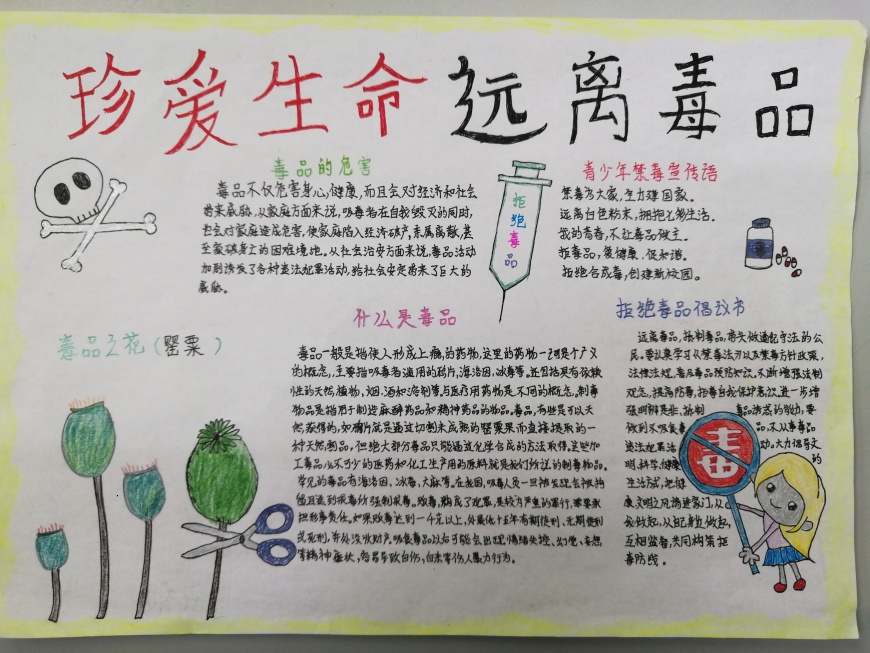 珍爱生命远离毒品
毒品的危害
毒品不仅危害身心健康,而且会对经济和社会
带来威胁,从家庭方面来说,吸毒者在自我毁灭的同时,
也会对家庭造成危害,使家庭陷入经济破产,亲属离散,甚
至家破身亡的困难境地。从社会治安方面来说,毒品活动
加剧诱发了各种违法犯罪活动,给社会安定带来了巨大的
威胁。
拒绝毒品
青少年禁毒宣传语
禁毒为大家,
远离白色粉末,拥抱七彩生活。
我的青春,不让毒品做主。
拒毒品,爱健康,促和谐。
拒绝合成毒,创建新校园。
毒
毒品之花(罂粟)
什么是毒品
毒品一般是指使人形成上瘾的药物,这里的药物一词是个广义
的概念,主要指吸毒者滥用的鸦片,海洛因,冰毒等。还包括具有依赖
性的天然植物,烟.酒和溶剂等.与医疗用药物是不同的概念,制毒
物品是指用于制造麻醉药品和精神药品的物品。毒品,有些是可以天
然获得的,如鸦片就是通过切割未成熟的罂粟果而直接提取的一
种天然制品,但绝大部分毒品只能通过化学合成的方法取得。这些加
工毒品必不可少的医药和化工生产用的原料就是我们所说的制毒物品。
常见的毒品有海洛因、冰毒、大麻等。在我国,吸毒人员一旦被发现,会被拘
留且送到戒毒所强制戒毒。贩毒,构成了犯罪,是较为严重的罪行,需要承
担刑事责任。如果贩毒达到一千克以上,处最低十五年有期徒刑、无期徒刑
或死刑,并处没收财产。吸食毒品以后可能会出现情绪失控、幻觉、妄想
等精神症状,容易导致自伤,自杀害伤人暴力行为。
拒绝毒品倡议书
远离毒品,抵制毒品,带头做遵纪守法的公
民。要认真学习《禁毒法》以及禁毒方针政策,
法律法规,普及毒品预防知识。不断增强法制
观念,提高防毒,拒毒自我保护意识,进一步增
强明辨是非、抵制 毒品诱惑的能力,要
做到不吸食毒 品,不从事毒品
违法犯罪活 动。大力倡导文
明,科学,健康 的
生活方式,把健
康文明之风扬进家门,从
会做起,从自己身边做起,
互相监督,共同构筑拒
毒防线。
毒